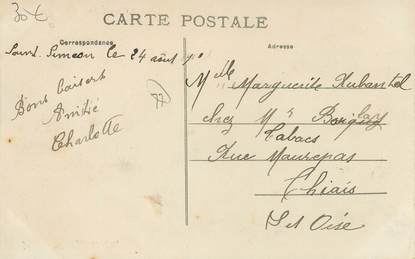 30€
CARTE POSTALE
Correspondance
Adresse
Saint Simeon le 24 août
Bons baisers
Amitié
Charlotte
77
Melle Marguerite
chez Mr
Tabacs
Rue Maurepas
Thiais
S et Oise